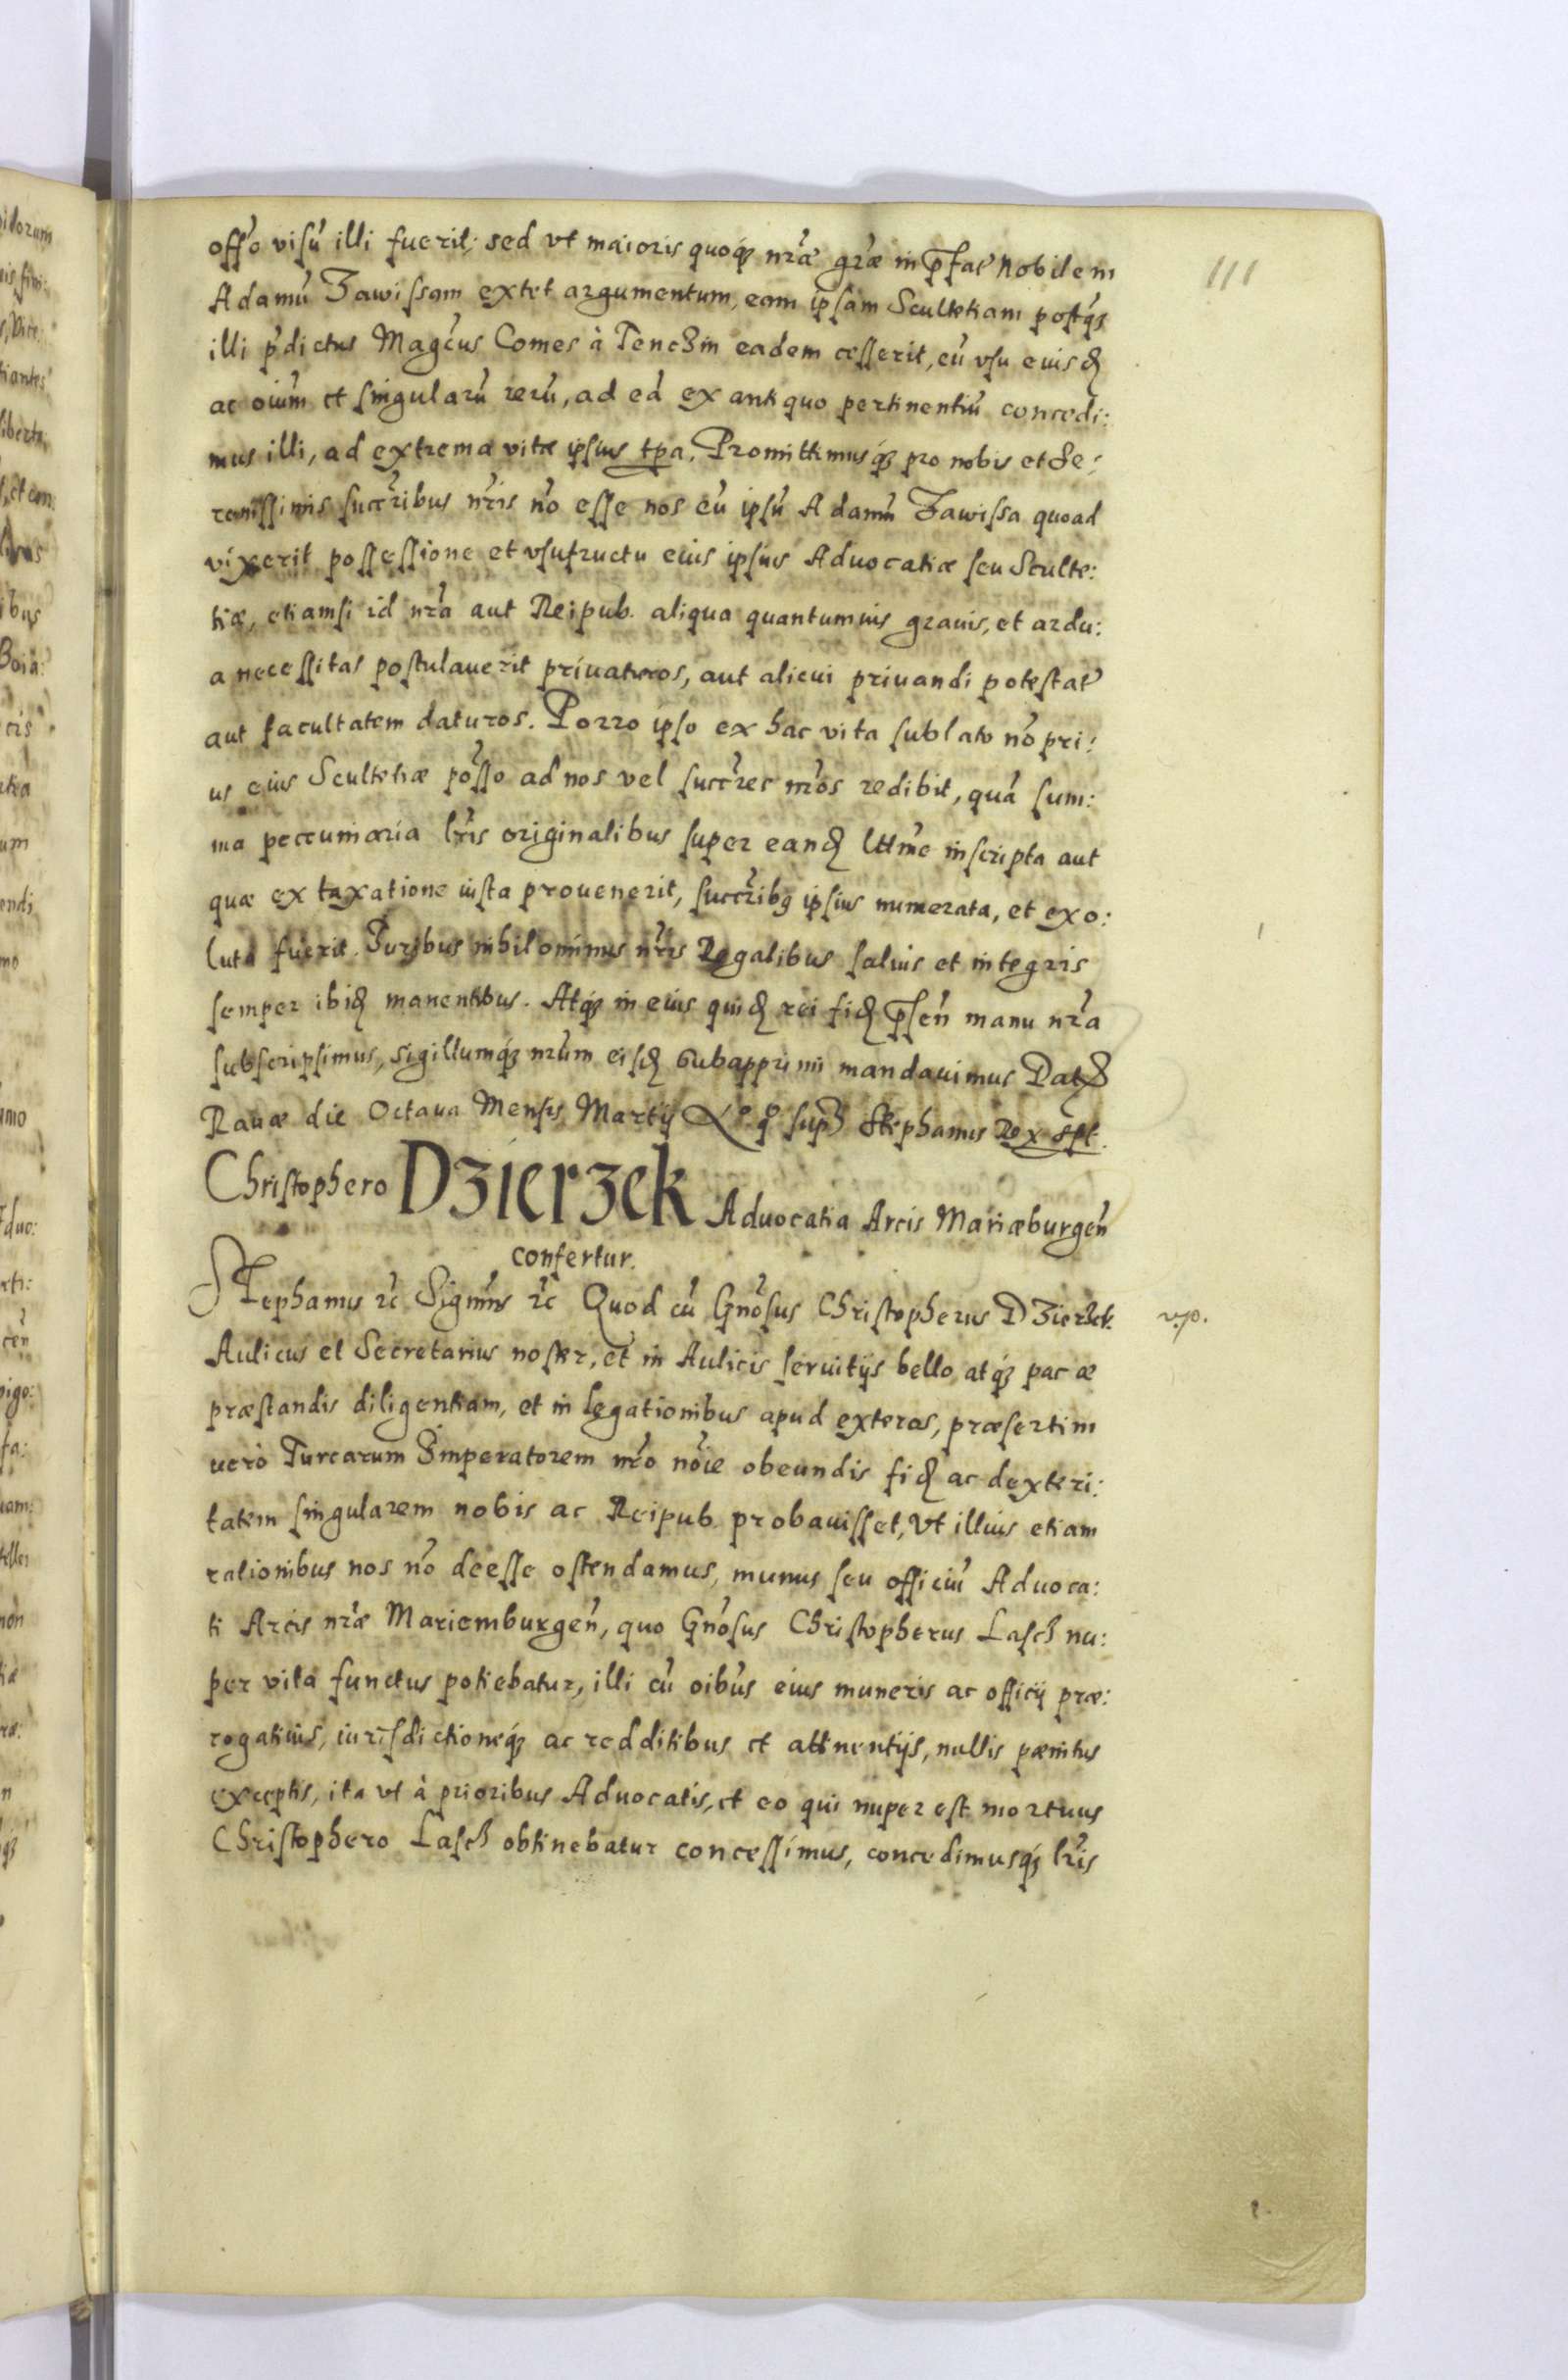 111
offo visũ illi fuerit; sed vt maioris quoq₃ nr̃æ gr̃æ in p̃fat̃ Nobilem
Adamũ Zawissam extet argumentum, eam ipsam Scultetiam postq̃₃
illi p̃dictus Magc̃us Comes à Tenczin eadem cesserit, cũ vsu eiusd̃
ac oiũm et singularũ rerũ, ad eã ex antiquo pertinentiũ concedi:
mus illi, ad extrema vitæ ipsius tp̃a. Promittimusq₃ pro nobis et Se:
renissimis succr̃ibus nr̃is nõ esse nos eũ ipsũ Adamũ Zawissa quoad
vixerit possessione et vsufructu eius ipsius Aduocatiæ seu Sculte:
tiæ, etiamsi id nr̃a aut Reipub. aliqua quantumuis grauis, et ardu:
a necessitas postulauerit priuaturos, aut alicui priuandi potestat̃
aut facultatem daturos. Porro ipso ex hac vita sublato nõ pri:
us eius Scultetiæ põsso ad nos vel succr̃es nr̃os redibit, quã sum:
ma peccuniaria lr̃is originalibus super eand̃ lttm̃e inscripta aut
quæ ex taxatione iusta prouenerit, succr̃ib₉ ipsius numerata, et exo:
luta fuerit. Juribus nihilominus nr̃is Regalibus saluis et integris
semper ibid̃ manentibus. Atq₃ in eius quid̃ rei fid̃ p̃sen̄ manu nr̃a
subscripsimus, sigillumq₃ nr̃um eisd̃ subapprimi mandauimus Dat̃
Rauæ die Octaua Mensis Martij Lº. qº sup̃ Stephanus Rex sst.
Christophero Dzierzek Aduocatia Arcis Mariæburgeñ
confertur.
Stephanus rc̃ Signm̃s rc̃ Quod cũ Gñosus Christopherus Dzierzek v.p.
Aulicus et Secretarius noster, et in Aulicis seruitijs bello atq₃ pacæ
præstandis diligentiam, et in legationibus apud exteros, præsertim
uerò Turcarum Imperatorem nr̃o nõie obeundis fid̃ ac dexteri:
tatem singularem nobis ac Reipub. probauisset, Vt illius etiam
rationibus nos nõ deesse ostendamus, munus seu officiũ Aduoca:
ti Arcis nr̃æ Mariemburgeñ, quo Gñosus Christopherus Lasch nu:
per vita functus potiebatur, illi cũ oibũs eius muneris ac officij præ:
rogatiuis, iurisdictioneq₃ ac redditibus et attnentijs, nullis pænitus
exceptis, ita vt à prioribus Aduocatis, et eo qui nuper est mortuus
Christophero Lasch obtinebatur concessimus, concedimusq₃ lr̃is